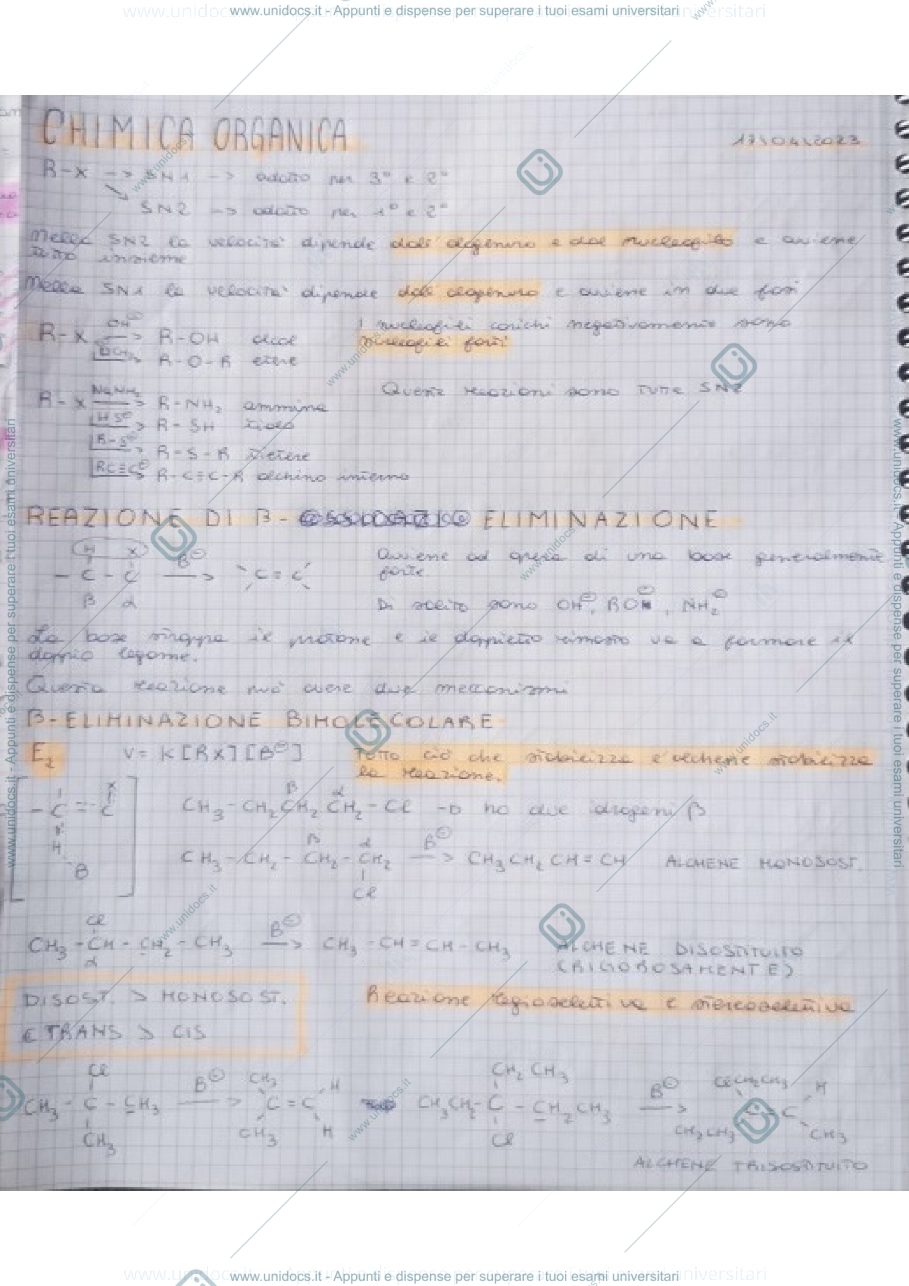 www.unidocs.it - Appunti e dispense per superare i tuoi esami universitari
CHIMICA ORGANICA
R-X -> SN1 -> adatto per 3° e 2°
SN2 -> adatto per 1° e 2°
Nella SN2 la velocità dipende dall'alogenuro e dal nucleofilo e avviene
tutto insieme
Nella SN1 la velocità dipende dall'alogenuro e avviene in due fasi
R-X OH⊖ -> R-OH alcol I nucleofili carichi negativamente sono
R-O-R etere nucleofili forti
Queste reazioni sono tutte SN2
R-X NaNH₂ -> R-NH₂ ammina
HS⊖ -> R-SH tiolo
R-S⊖ -> R-S-R tioetere
RC≡C⊖ -> R-C≡C-R alchino interno
REAZIONE DI β- ELIMINAZIONE
H X
-C-C- B⊖ -> C=C Avviene ad opera di una base generalmente
forte.
β α Di solito sono OH⊖, RO⊖, NH₂⊖
La base strappa il protone e il doppietto rimasto va a formare il
doppio legame.
Questa reazione può avere due meccanismi
β-ELIMINAZIONE BIMOLECOLARE
E₂ V = K [RX] [B⊖] Tutto ciò che stabilizza l'alchene stabilizza
la reazione.
X
-C=C
H
B
β α
CH₃-CH₂CH₂CH₂-Cl -> ho due idrogeni β
β α
CH₃-CH₂-CH₂-CH₂ B⊖ -> CH₃CH₂CH=CH ALCHENE MONOSOST.
Cl
Cl
CH₃-CH-CH₂-CH₃ B⊖ -> CH₃-CH=CH-CH₃ ALCHENE DISOSTITUITO
α (RIGOROSAMENTE)
DISOST. > MONOSOST. Reazione regioselettiva e stereoselettiva
E TRANS > CIS
Cl CH₃ H CH₂CH₃
CH₃-C-CH₃ B⊖ -> C=C CH₃CH₂-C-CH₂CH₃ B⊖ -> C=C H
CH₃ CH₃ H Cl CH₂CH₃ CH₃
ALCHENE TRISOSTITUITO
www.unidocs.it - Appunti e dispense per superare i tuoi esami universitari